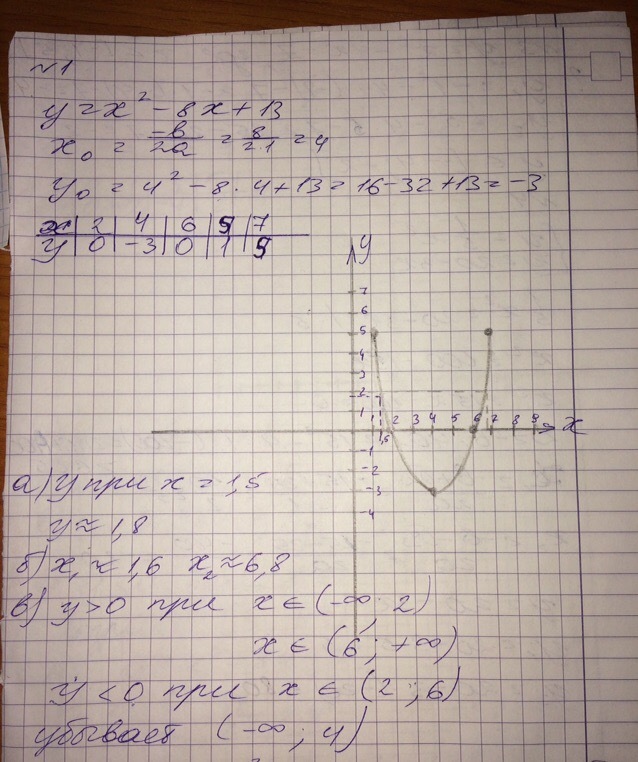 №1
y = x² - 8x + 13
x₀ = -b/2a = 8/2·1 = 4
y₀ = 4² - 8·4 + 13 = 16 - 32 + 13 = -3
x | 2 | 4 | 6 | 5 | 7
y | 0 | -3 | 0 | 1 | 5
y
7
6
5
4
3
2
1
1 1,5 2 3 4 5 6 7 8 9 x
-1
-2
-3
-4
а) y при x = 1,5
y ≈ 1,8
б) x₁ ≈ 1,6 x₂ ≈ 6,8
в) y > 0 при x ∈ (-∞; 2)
x ∈ (6; +∞)
y < 0 при x ∈ (2; 6)
убывает (-∞; 4)